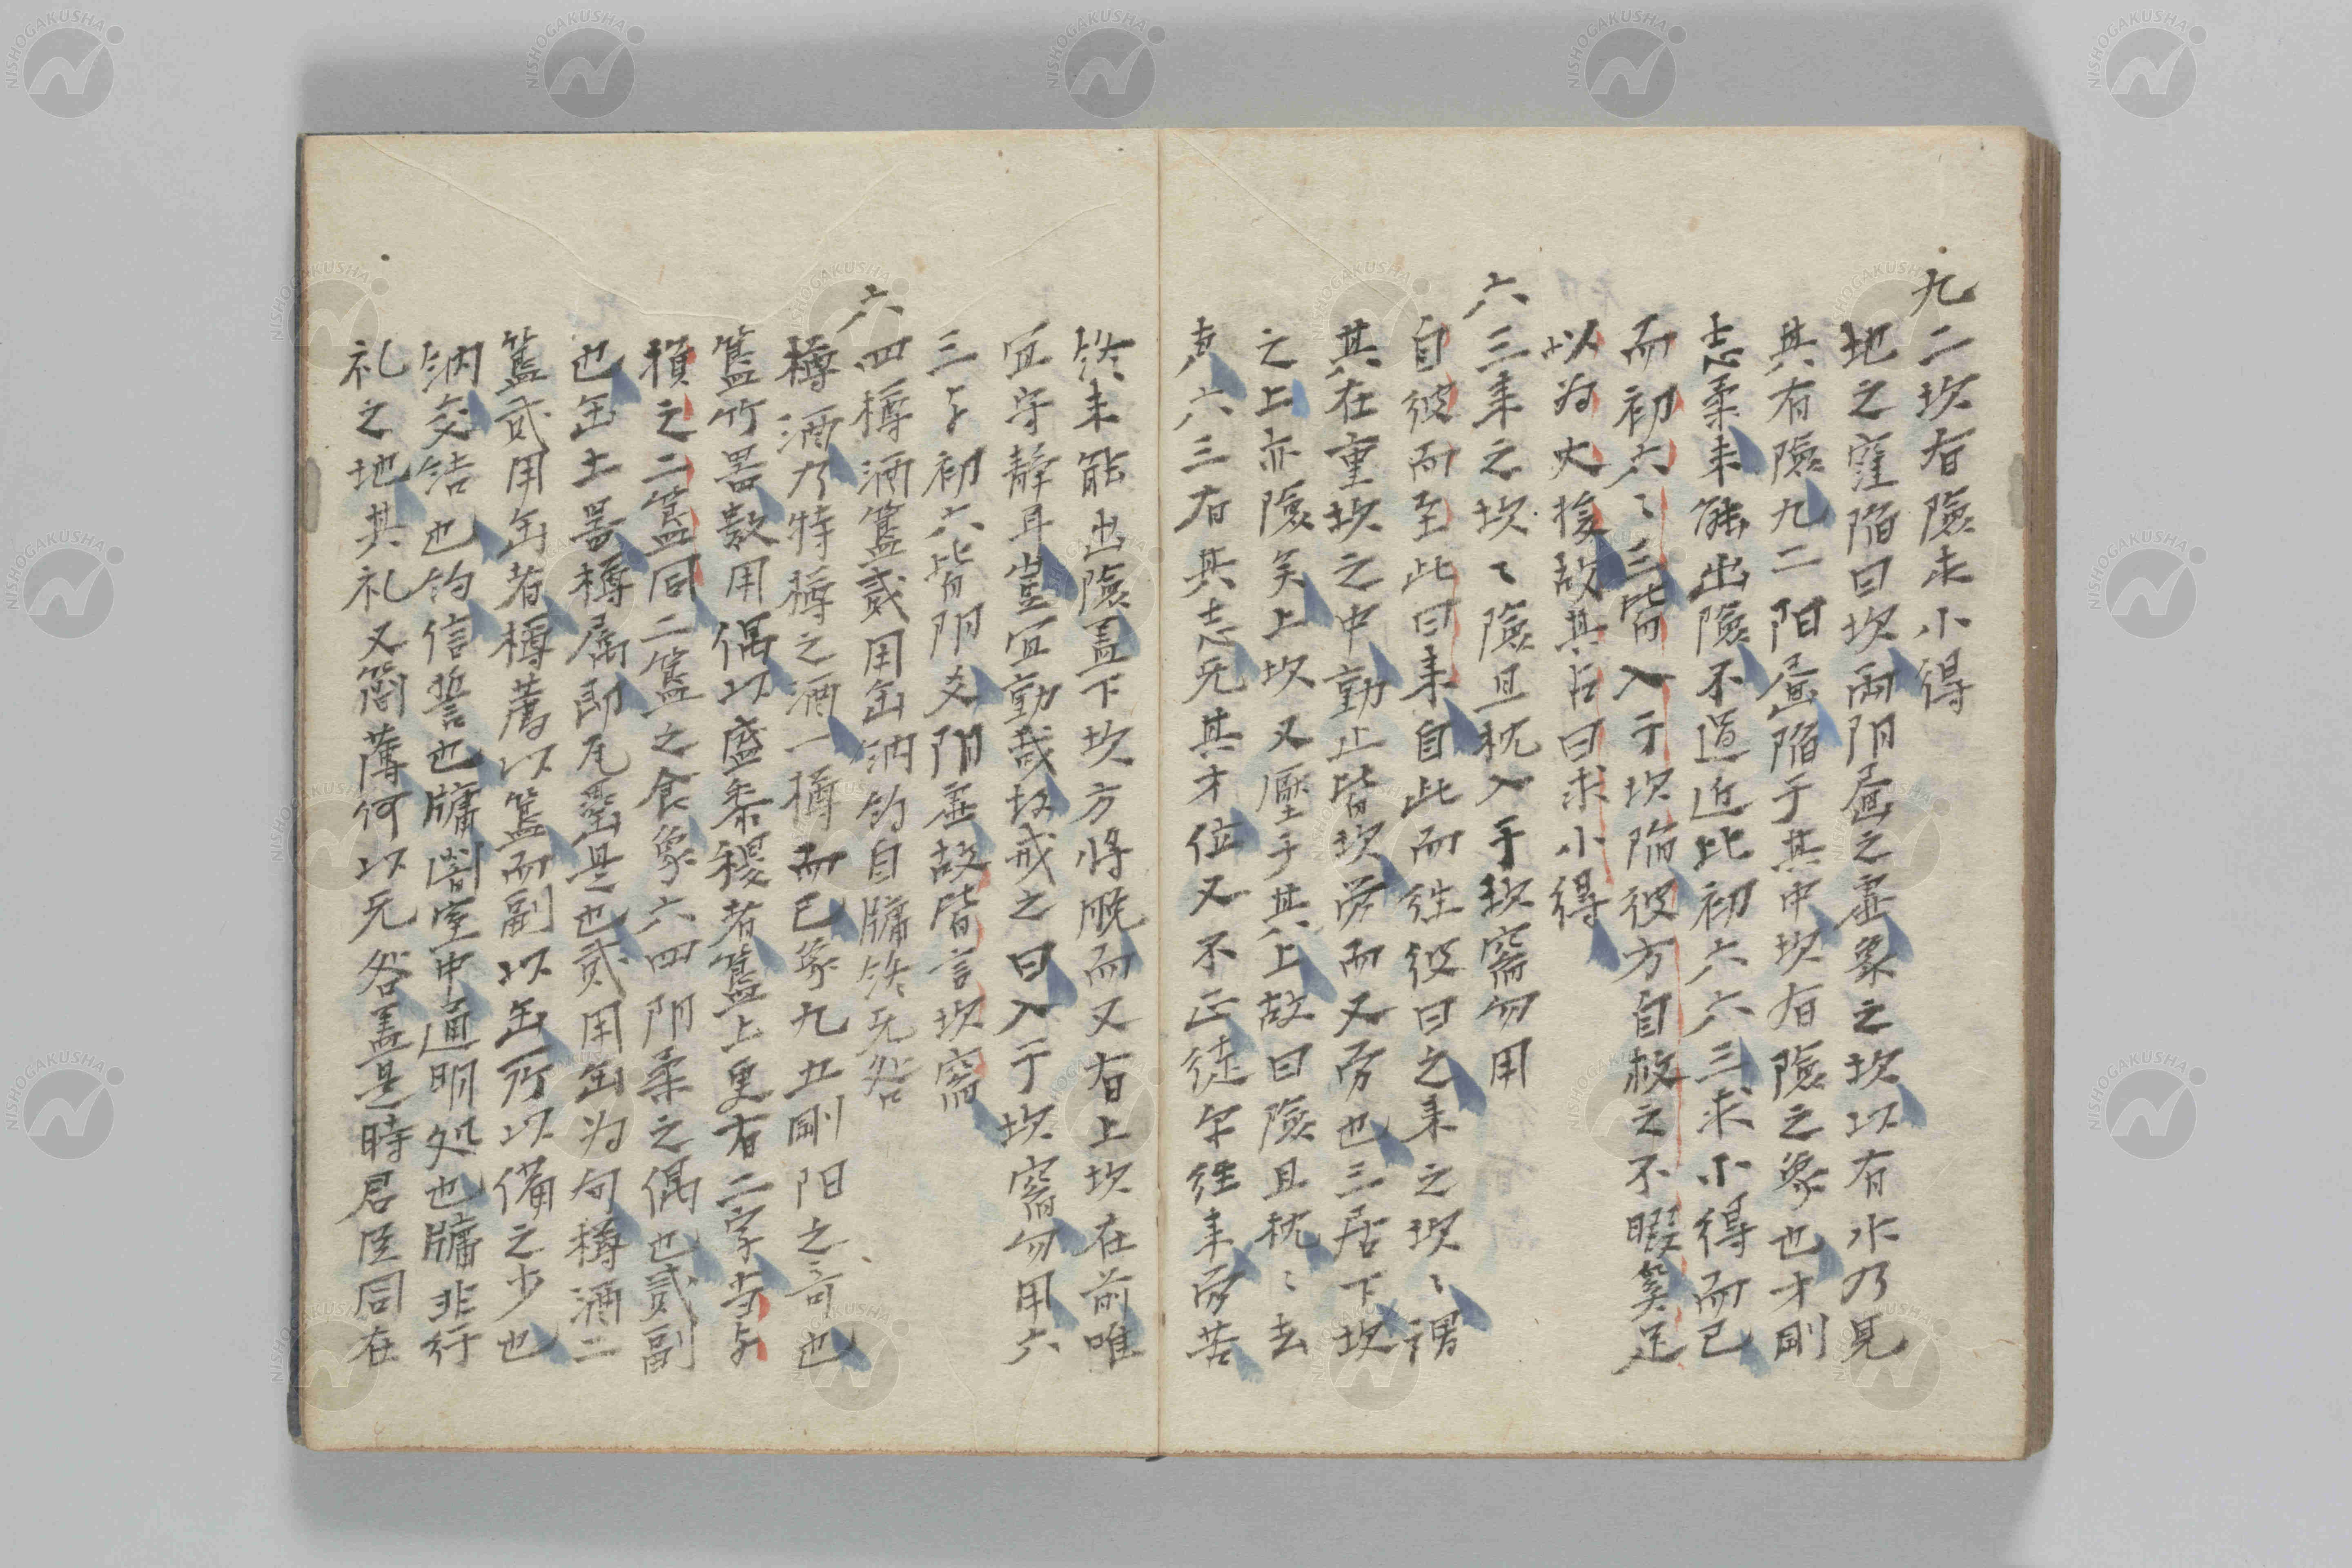 九二坎有險求小得
地之窪陷曰坎兩阴畫之虛象之坎以有水乃見
其有險九二阳畫陷于其中坎有險之象也才剛
志柔未能出險不過近比初六六三求小得而已
而初六〻三皆入于坎陷彼方自救之不暇奚足
以为大援故其占曰求小得
六三来之坎〻險且枕入于坎窞勿用
自彼而至此曰来自此而往彼曰之来之坎〻謂
其在重坎之中動止皆坎労而又労也三居下坎
之上亦險矣上坎又壓于其上故曰險且枕〻去
声六三有其志无其才位又不正徒尓往来労苦
終未能出險盖下坎方將脫而又有上坎在前唯
宜守靜耳豈宜動哉故戒之曰入于坎窞勿用六
三与初六皆阴爻阴虚故皆言坎窞
六四樽酒簋貳用缶納約自牖終无咎
樽酒乃特樽之酒一樽而已象九五剛阳之奇也
簋竹器数用偶以盛黍稷者簋上更有二字当与
損之二簋同二簋之食象六四阴柔之偶也貳副
也缶土器樽属即瓦罍是也貳用缶为句樽酒二
簋貳用缶者樽薦以簋而副以缶所以備之少也
納交结也約信誓也牖闇室中通明処也牖非行
礼之地其礼又簡薄何以无咎盖是時君臣同在
NISHOGAKUSHA